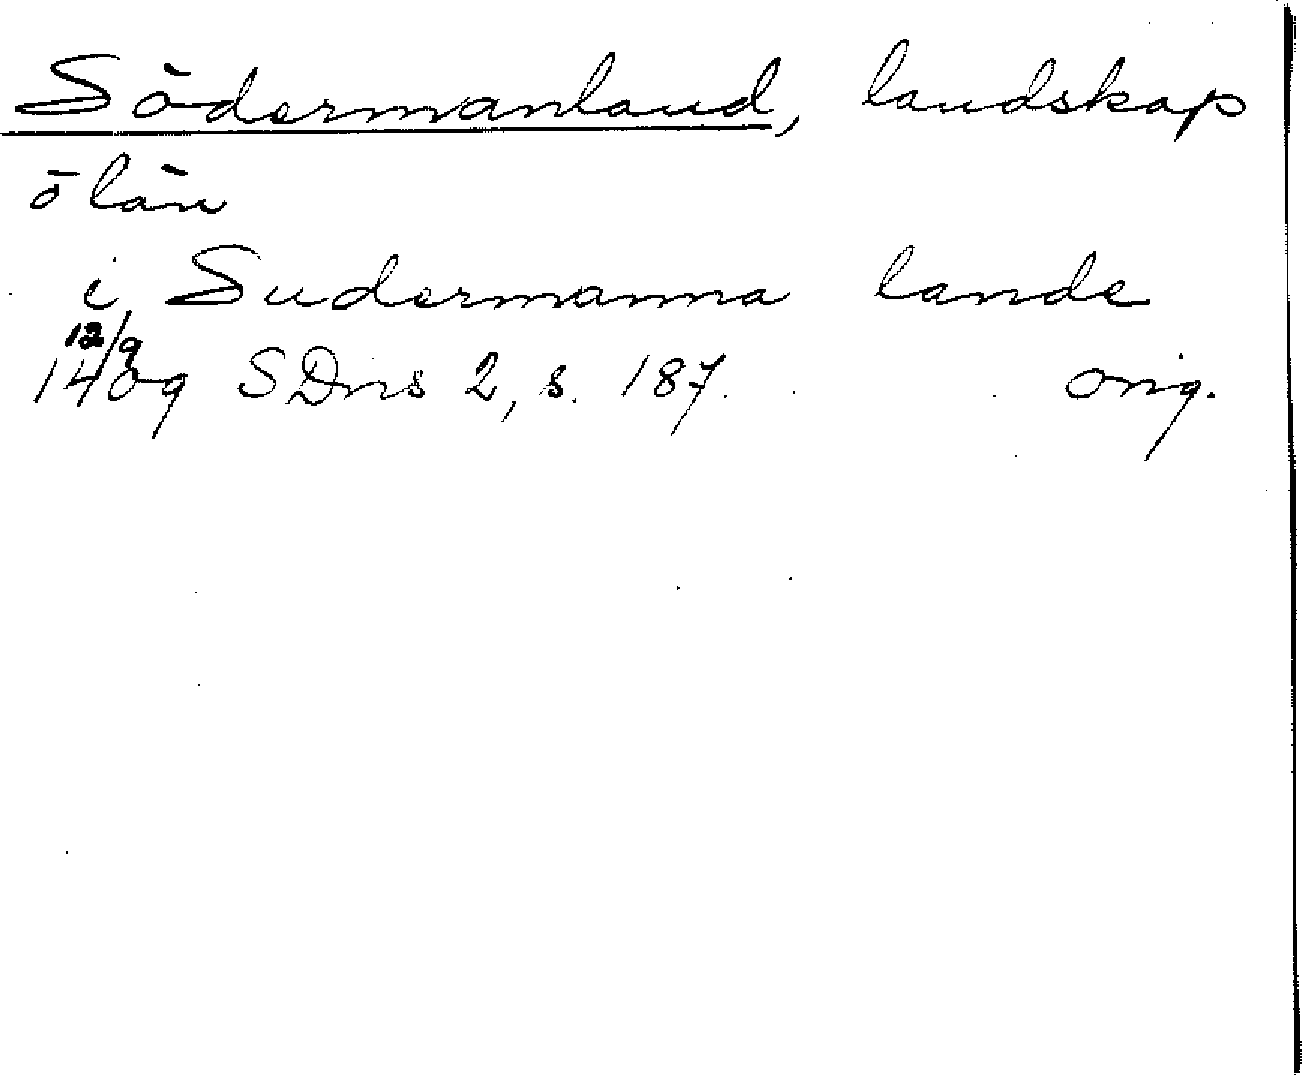 Södermanland, landskap
ö län
i Sudermanna lande
12/9
1409 SDns 2, s. 187. orig.